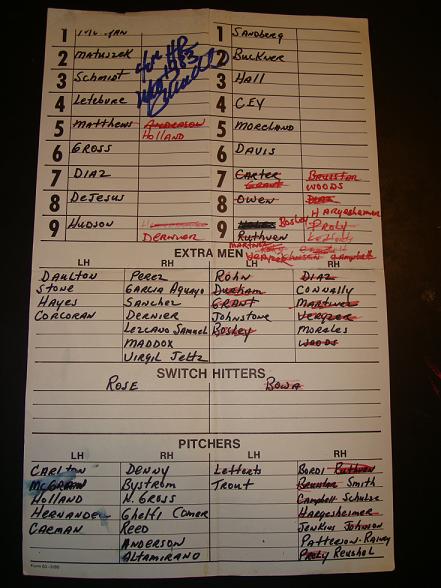 1 1 SANDBERG
2 MATUSZEK 2 BUCKNER
3 Schmidt 3 HALL
4 Lefebure 4 CEY
5 MATTHEWS ANDERSON HOLLAND 5 MORELAND
6 GROSS 6 DAVIS
7 DIAZ 7 CARTER GRANT BRUSSTAR WOODS
8 DeJesus 8 OWEN DIAZ HARGESHEIMER
9 HUDSON DERNIER 9 Bosley PROLY
RUTHVEN
MARTINEZ Campbell
EXTRA MEN
LH RH LH RH
DAULTON PEREZ ROHN DIAZ
STONE GARCIA AGUAYO DURHAM CONNALLY
HAYES SANCHEZ GRANT MARTINEZ
CORCORAN DERNIER JOHNSTONE VERYZER
LEZCANO SAMUEL BOSLEY MORALES
MADDOX WOODS
VIRGIL JELTZ
SWITCH HITTERS
ROSE BOWA
PITCHERS
LH RH LH RH
CARLTON DENNY Lefferts BORDI RUTHVEN
McGRAW BYSTROM TROUT BRUSSTAR Smith
HOLLAND K. GROSS Campbell Schulze
HERNANDEZ Ghelfi Comer HARGESHEIMER
CARMAN REED JENKINS JOHNSON
ANDERSON PATTERSON-RAINEY
ALTAMIRANO PROLY REUSCHEL